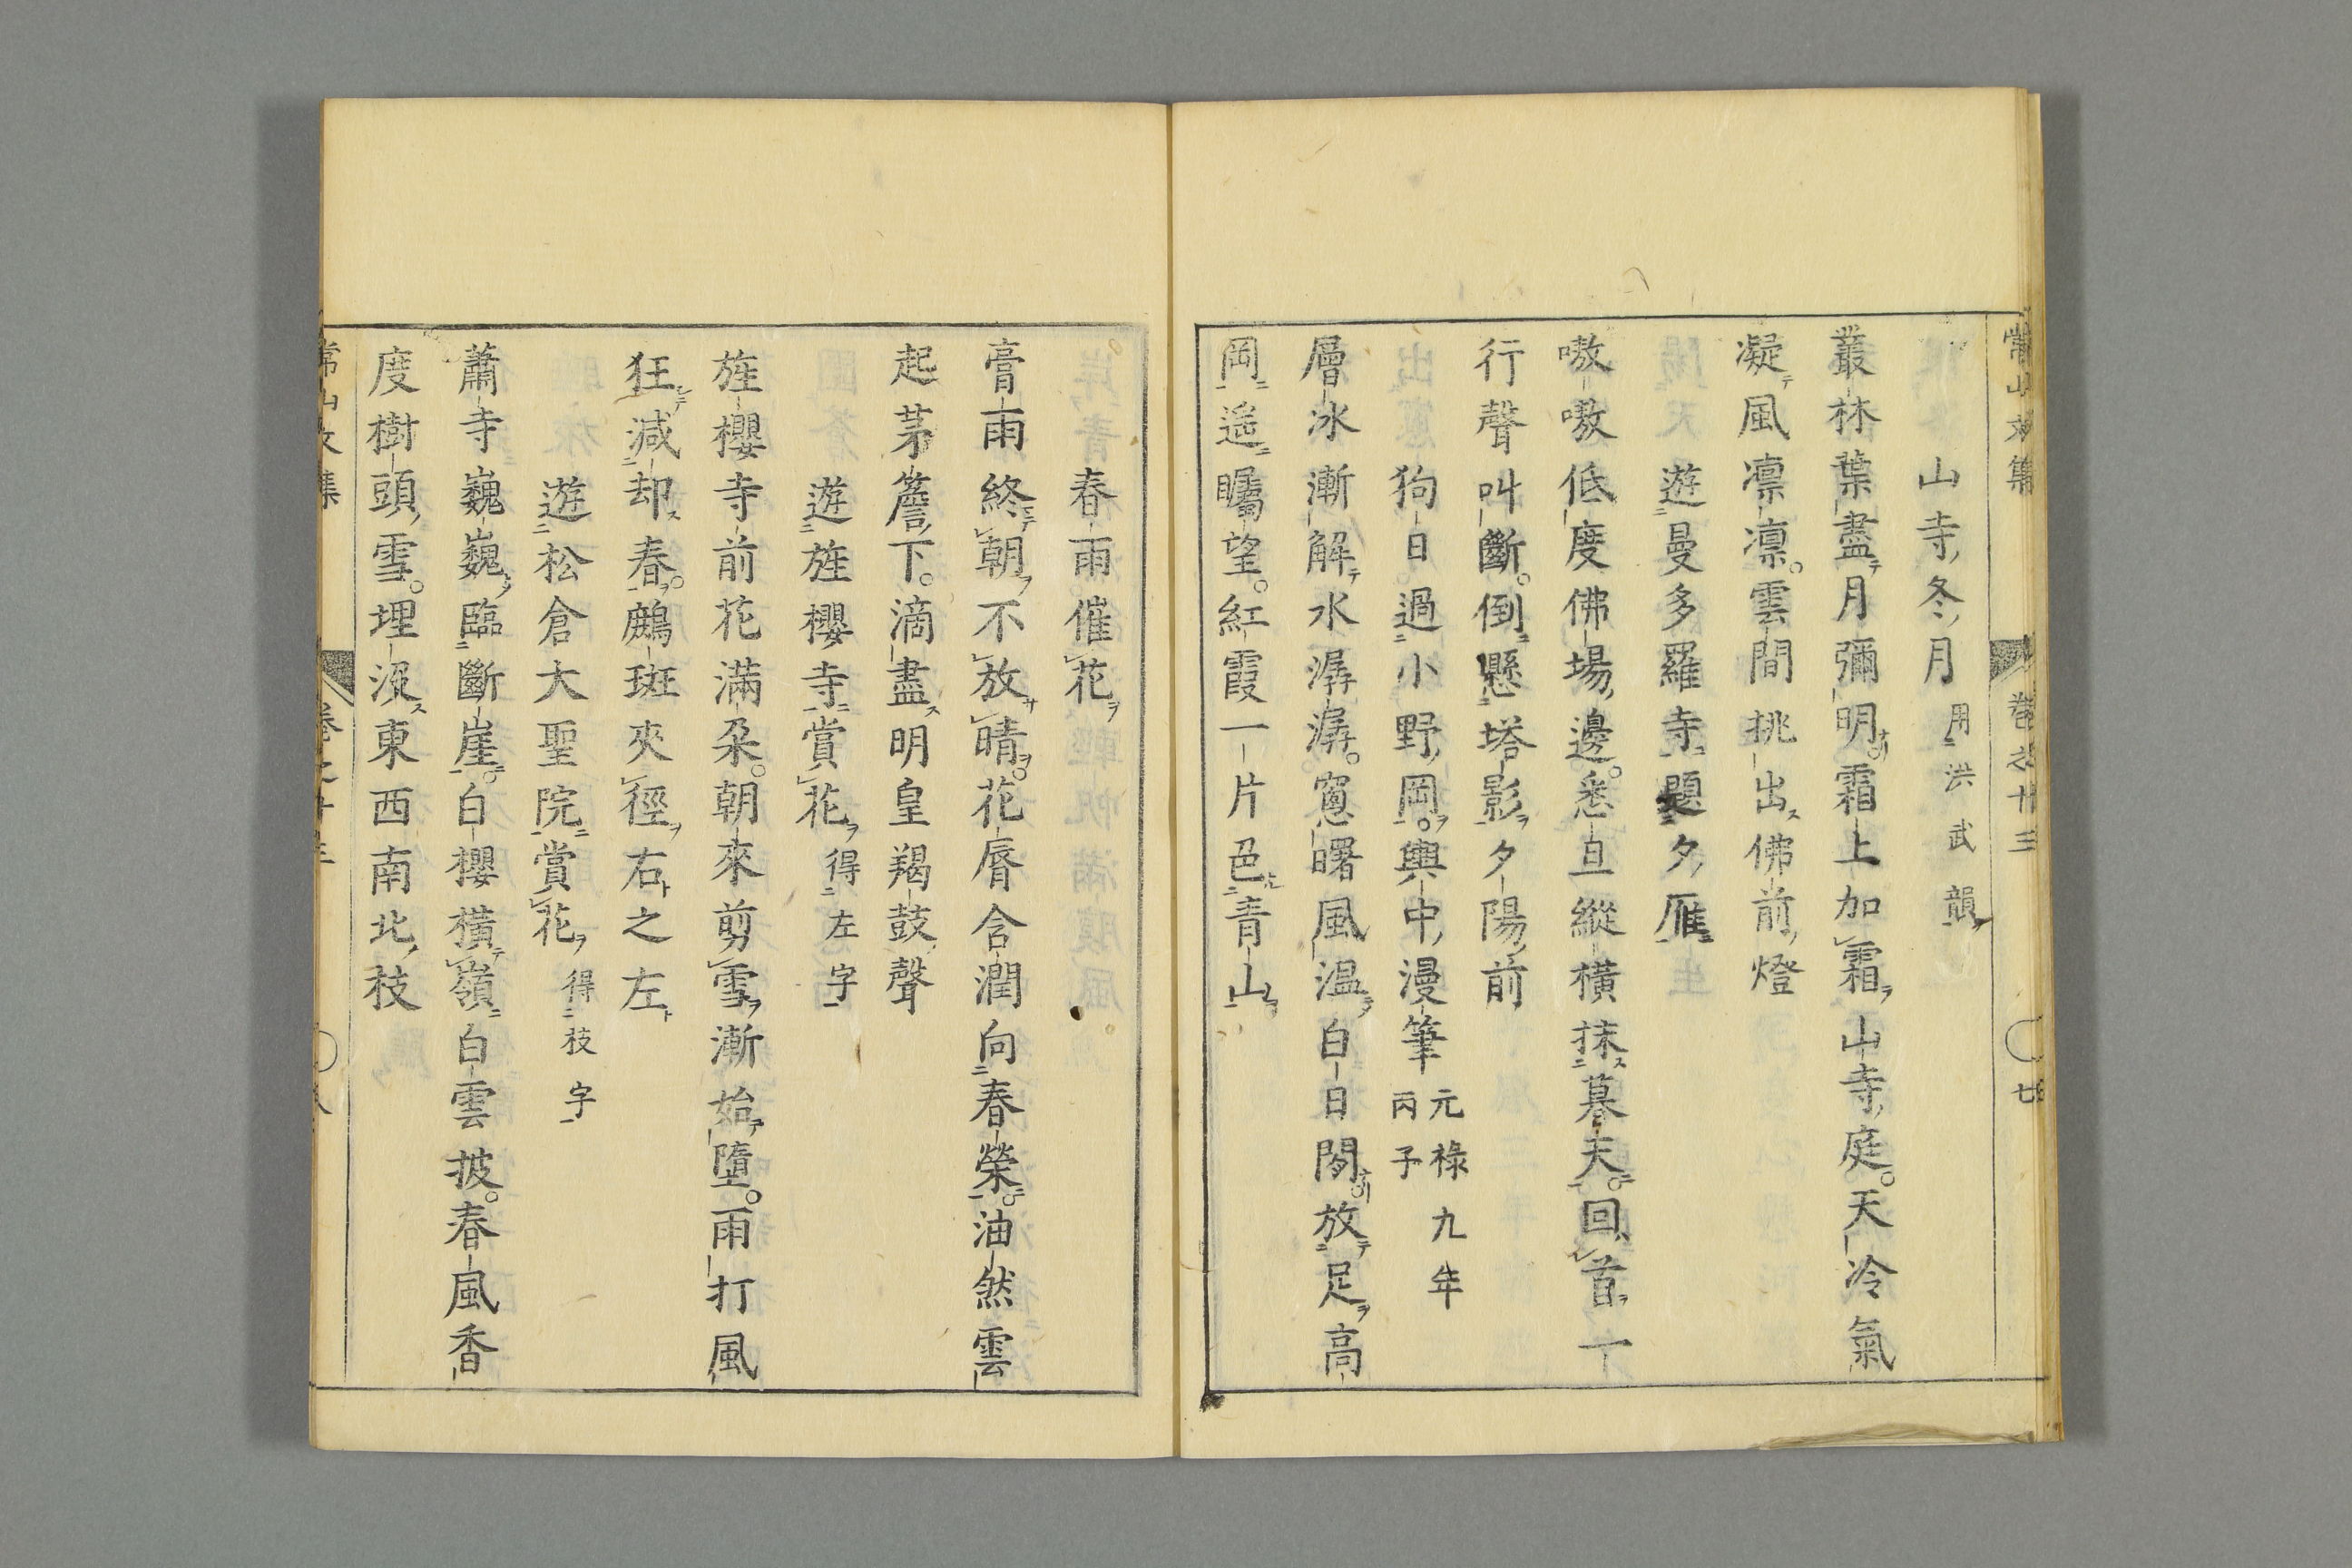 常山文集 卷之廿三 七
山寺冬月 用洪武韻
叢林葉盡月彌明霜上加霜山寺庭天冷氣
凝風凛凛雲間挑出佛前燈
遊曼多羅寺題夕雁
嗷嗷低度佛場邊悉亘縱橫抹暮天回首一
行聲叫斷倒懸塔影夕陽前
狗日過小野岡輿中漫筆 元祿九年
丙子
層冰漸解水潺潺窻曙風温白日閑放足高
岡遥矚望紅霞一片色青山
春雨催花
膏雨終朝不放晴花脣含潤向春榮油然雲
起茅簷下滴盡明皇羯鼓聲
遊旌櫻寺賞花 得左字
旌櫻寺前花滿朶朝來剪雪漸始墮雨打風
狂減却春鷓斑夾徑右之左
遊松倉大聖院賞花 得枝字
蕭寺巍巍臨斷崖白櫻橫嶺白雲披春風香
度樹頭雪埋没東西南北枝
常山文集 卷之廿三 八